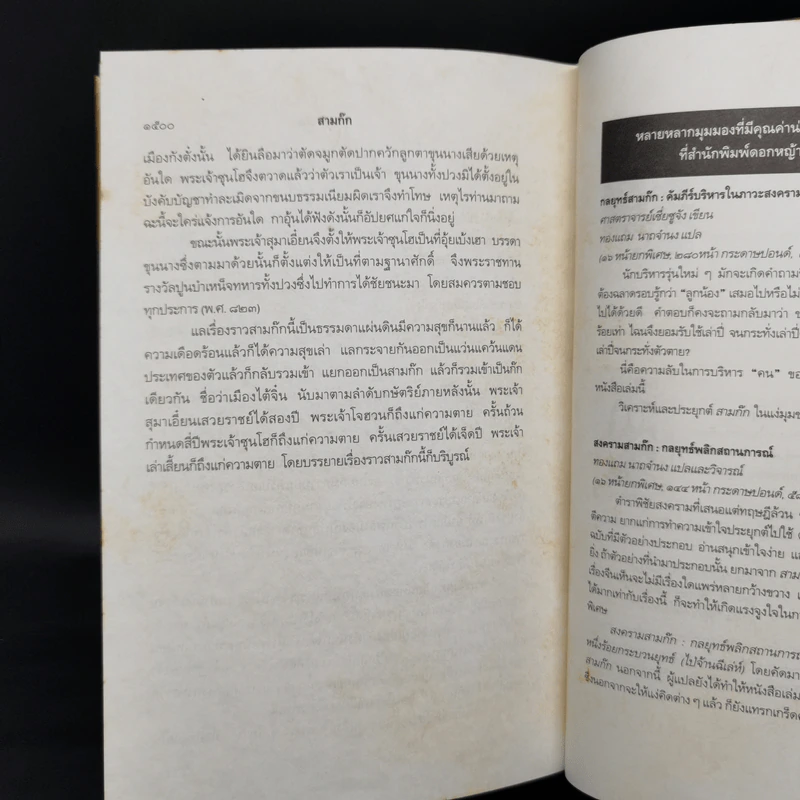 ๑๕๐๐
สามก๊ก
เมืองกังตั๋งนั้น ได้ยินลือมาว่าตัดจมูกตัดปากควักลูกตาขุนนางเสียด้วยเหตุ
อันใด พระเจ้าซุนโฮจึงตวาดแล้วว่าตัวเราเป็นเจ้า ขุนนางทั้งปวงมิได้ตั้งอยู่ใน
บังคับบัญชาทำละเมิดจากขนบธรรมเนียมผิดเราจึงทำโทษ เหตุไรท่านมาถาม
ฉะนี้จะใคร่แจ้งการอันใด กาอุ้นได้ฟังดังนั้นก็อัปยศแก่ใจก็นิ่งอยู่
ขณะนั้นพระเจ้าสุมาเอี๋ยนจึงตั้งให้พระเจ้าซุนโฮเป็นที่อุ้ยเบ้งเฮา บรรดา
ขุนนางซึ่งตามมาด้วยนั้นก็ตั้งแต่งให้เป็นที่ตามฐานาศักดิ์ จึงพระราชทาน
รางวัลปูนบำเหน็จทหารทั้งปวงซึ่งไปทำการได้ชัยชนะมา โดยสมควรตามชอบ
ทุกประการ (พ.ศ. ๘๒๓)
แลเรื่องราวสามก๊กนี้เป็นธรรมดาแผ่นดินมีความสุขก็นานแล้ว ก็ได้
ความเดือดร้อนแล้วก็ได้ความสุขเล่า แลกระจายกันออกเป็นแว่นแคว้นแดน
ประเทศของตัวแล้วก็กลับรวมเข้า แยกออกเป็นสามก๊ก แล้วก็รวมเข้าเป็นก๊ก
เดียวกัน ชื่อว่าเมืองไต้จิ้น นับมาตามลำดับกษัตริย์ภายหลังนั้น พระเจ้า
สุมาเอี๋ยนเสวยราชย์ได้สองปี พระเจ้าโจฮวนก็ถึงแก่ความตาย ครั้นถ้วน
กำหนดสี่ปีพระเจ้าซุนโฮก็ถึงแก่ความตาย ครั้นเสวยราชย์ได้เจ็ดปี พระเจ้า
เล่าเสี้ยนก็ถึงแก่ความตาย โดยบรรยายเรื่องราวสามก๊กนี้ก็บริบูรณ์
หลายหลากมุมมองที่มีคุณค่าน่
ที่สำนักพิมพ์ดอกหญ้า
กลยุทธ์สามก๊ก : คัมภีร์บริหารในภาวะสงคราม
ศาสตราจารย์เซี่ยซูจัง เขียน
ทองแถม นาถจำนง แปล
(๑๖ หน้ายกพิเศษ, ๒๘๐หน้า กระดาษปอนด์,
นักบริหารรุ่นใหม่ ๆ มักจะเกิดคำถาม
ต้องฉลาดรอบรู้กว่า "ลูกน้อง" เสมอไปหรือไม่
ไปได้ด้วยดี คำตอบก็คงจะถามกลับมาว่า
ร้อยเท่า ไฉนจึงยอมรับใช้เล่าปี่ จนกระทั่งเล่าปี่
เล่าปี่จนกระทั่งตัวตาย?
นี่คือความลับในการบริหาร "คน" ขอ
หนังสือเล่มนี้
วิเคราะห์และประยุกต์ สามก๊ก ในแง่มุมข
สงครามสามก๊ก : กลยุทธ์พลิกสถานการณ์
ทองแถม นาถจำนง แปลและวิจารณ์
(๑๖ หน้ายกพิเศษ, ๑๔๔ หน้า กระดาษปอนด์,
ตำราพิชัยสงครามที่เสนอแต่ทฤษฎีล้วน
ตีความ ยากแก่การทำความเข้าใจประยุกต์ไปใช้
ฉบับที่มีตัวอย่างประกอบ อ่านสนุกเข้าใจง่าย แ
ยิ่ง ถ้าตัวอย่างที่นำมาประกอบนั้น ยกมาจาก สาม
เรื่องจีนเห็นจะไม่มีเรื่องใดแพร่หลายกว้างขวาง
ได้มากเท่ากับเรื่องนี้ ก็จะทำให้เกิดแรงจูงใจในกา
พิเศษ
สงครามสามก๊ก : กลยุทธ์พลิกสถานการ
หนึ่งร้อยกระบวนยุทธ์ (ไป่จ้านฉีเล่ห์) โดยคัดมา
สามก๊ก นอกจากนี้ ผู้แปลยังได้ทำให้หนังสือเล่ม
ซึ่งนอกจากจะให้แง่คิดต่าง ๆ แล้ว ก็ยังแทรกเกร็ด